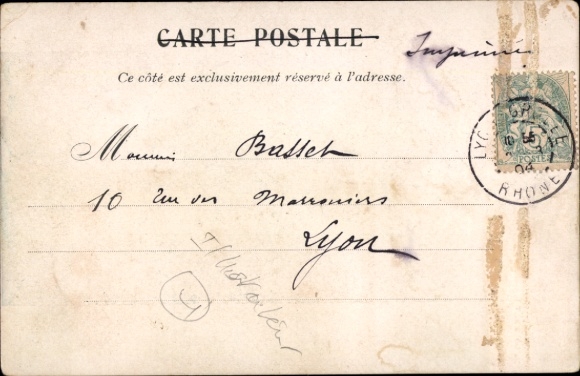 CARTE POSTALE
Imprimé
Ce côté est exclusivement réservé à l'adresse.
Monsieur Basset
10 Rue des Marronniers
Lyon
LYON GROLÉE
04
RHONE
POSTE
4